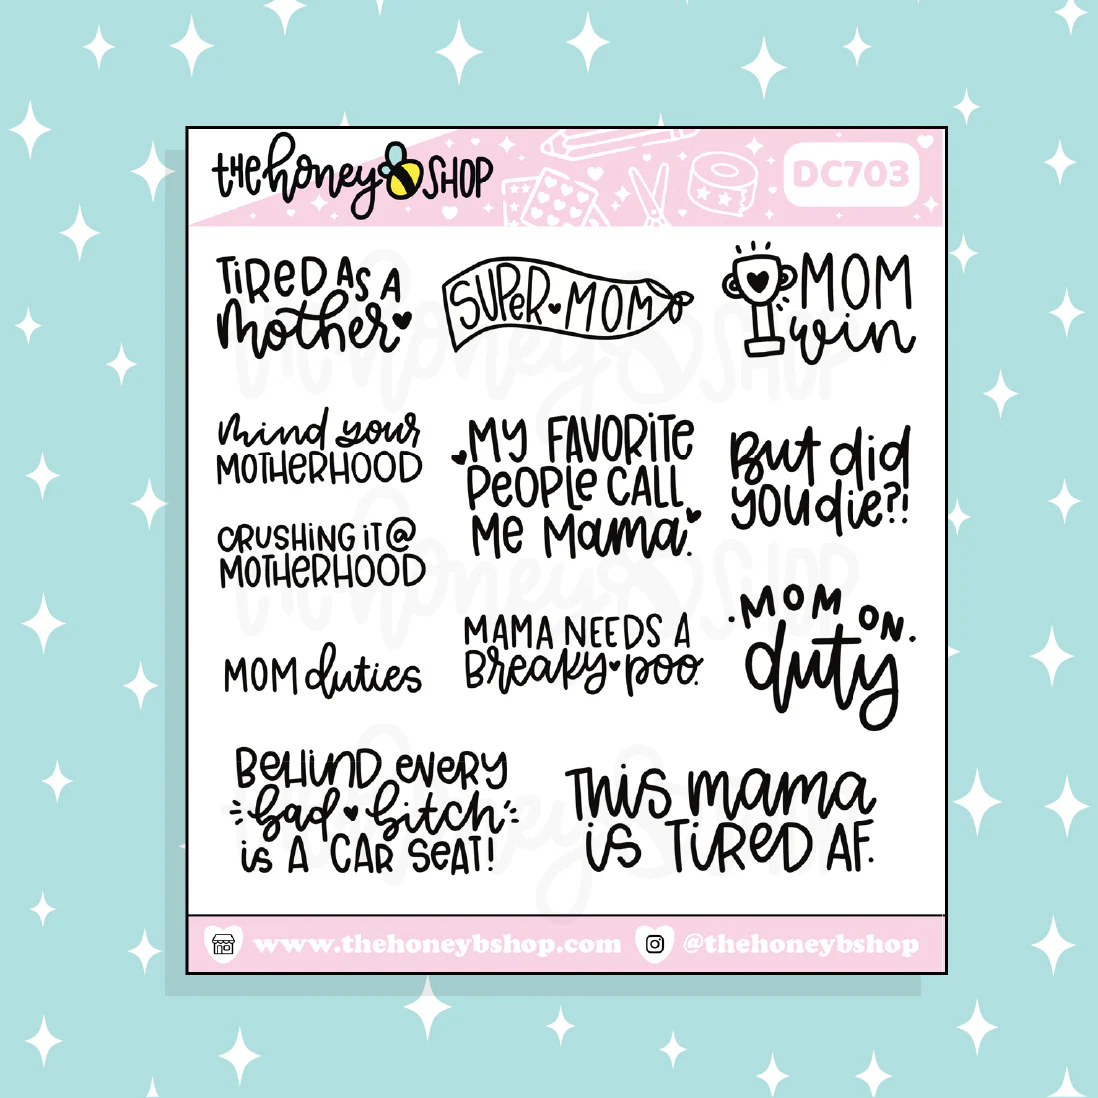 the honey SHOP
DC703
TIRED AS A
mother
SUPER MOM
MOM
win
mind your
MOTHERHOOD
MY FAVORITE
PEOPLE CALL
ME Mama.
But did
you die?!
CRUSHING iT @
MOTHERHOOD
MAMA NEEDS A
Breaky poo.
MOM ON
duty
MOM duties
BEHIND EVERY
bad bitch
is A CAR SEAT!
THIS mama
is TIRED AF.
www.thehoneybshop.com
@thehoneybshop